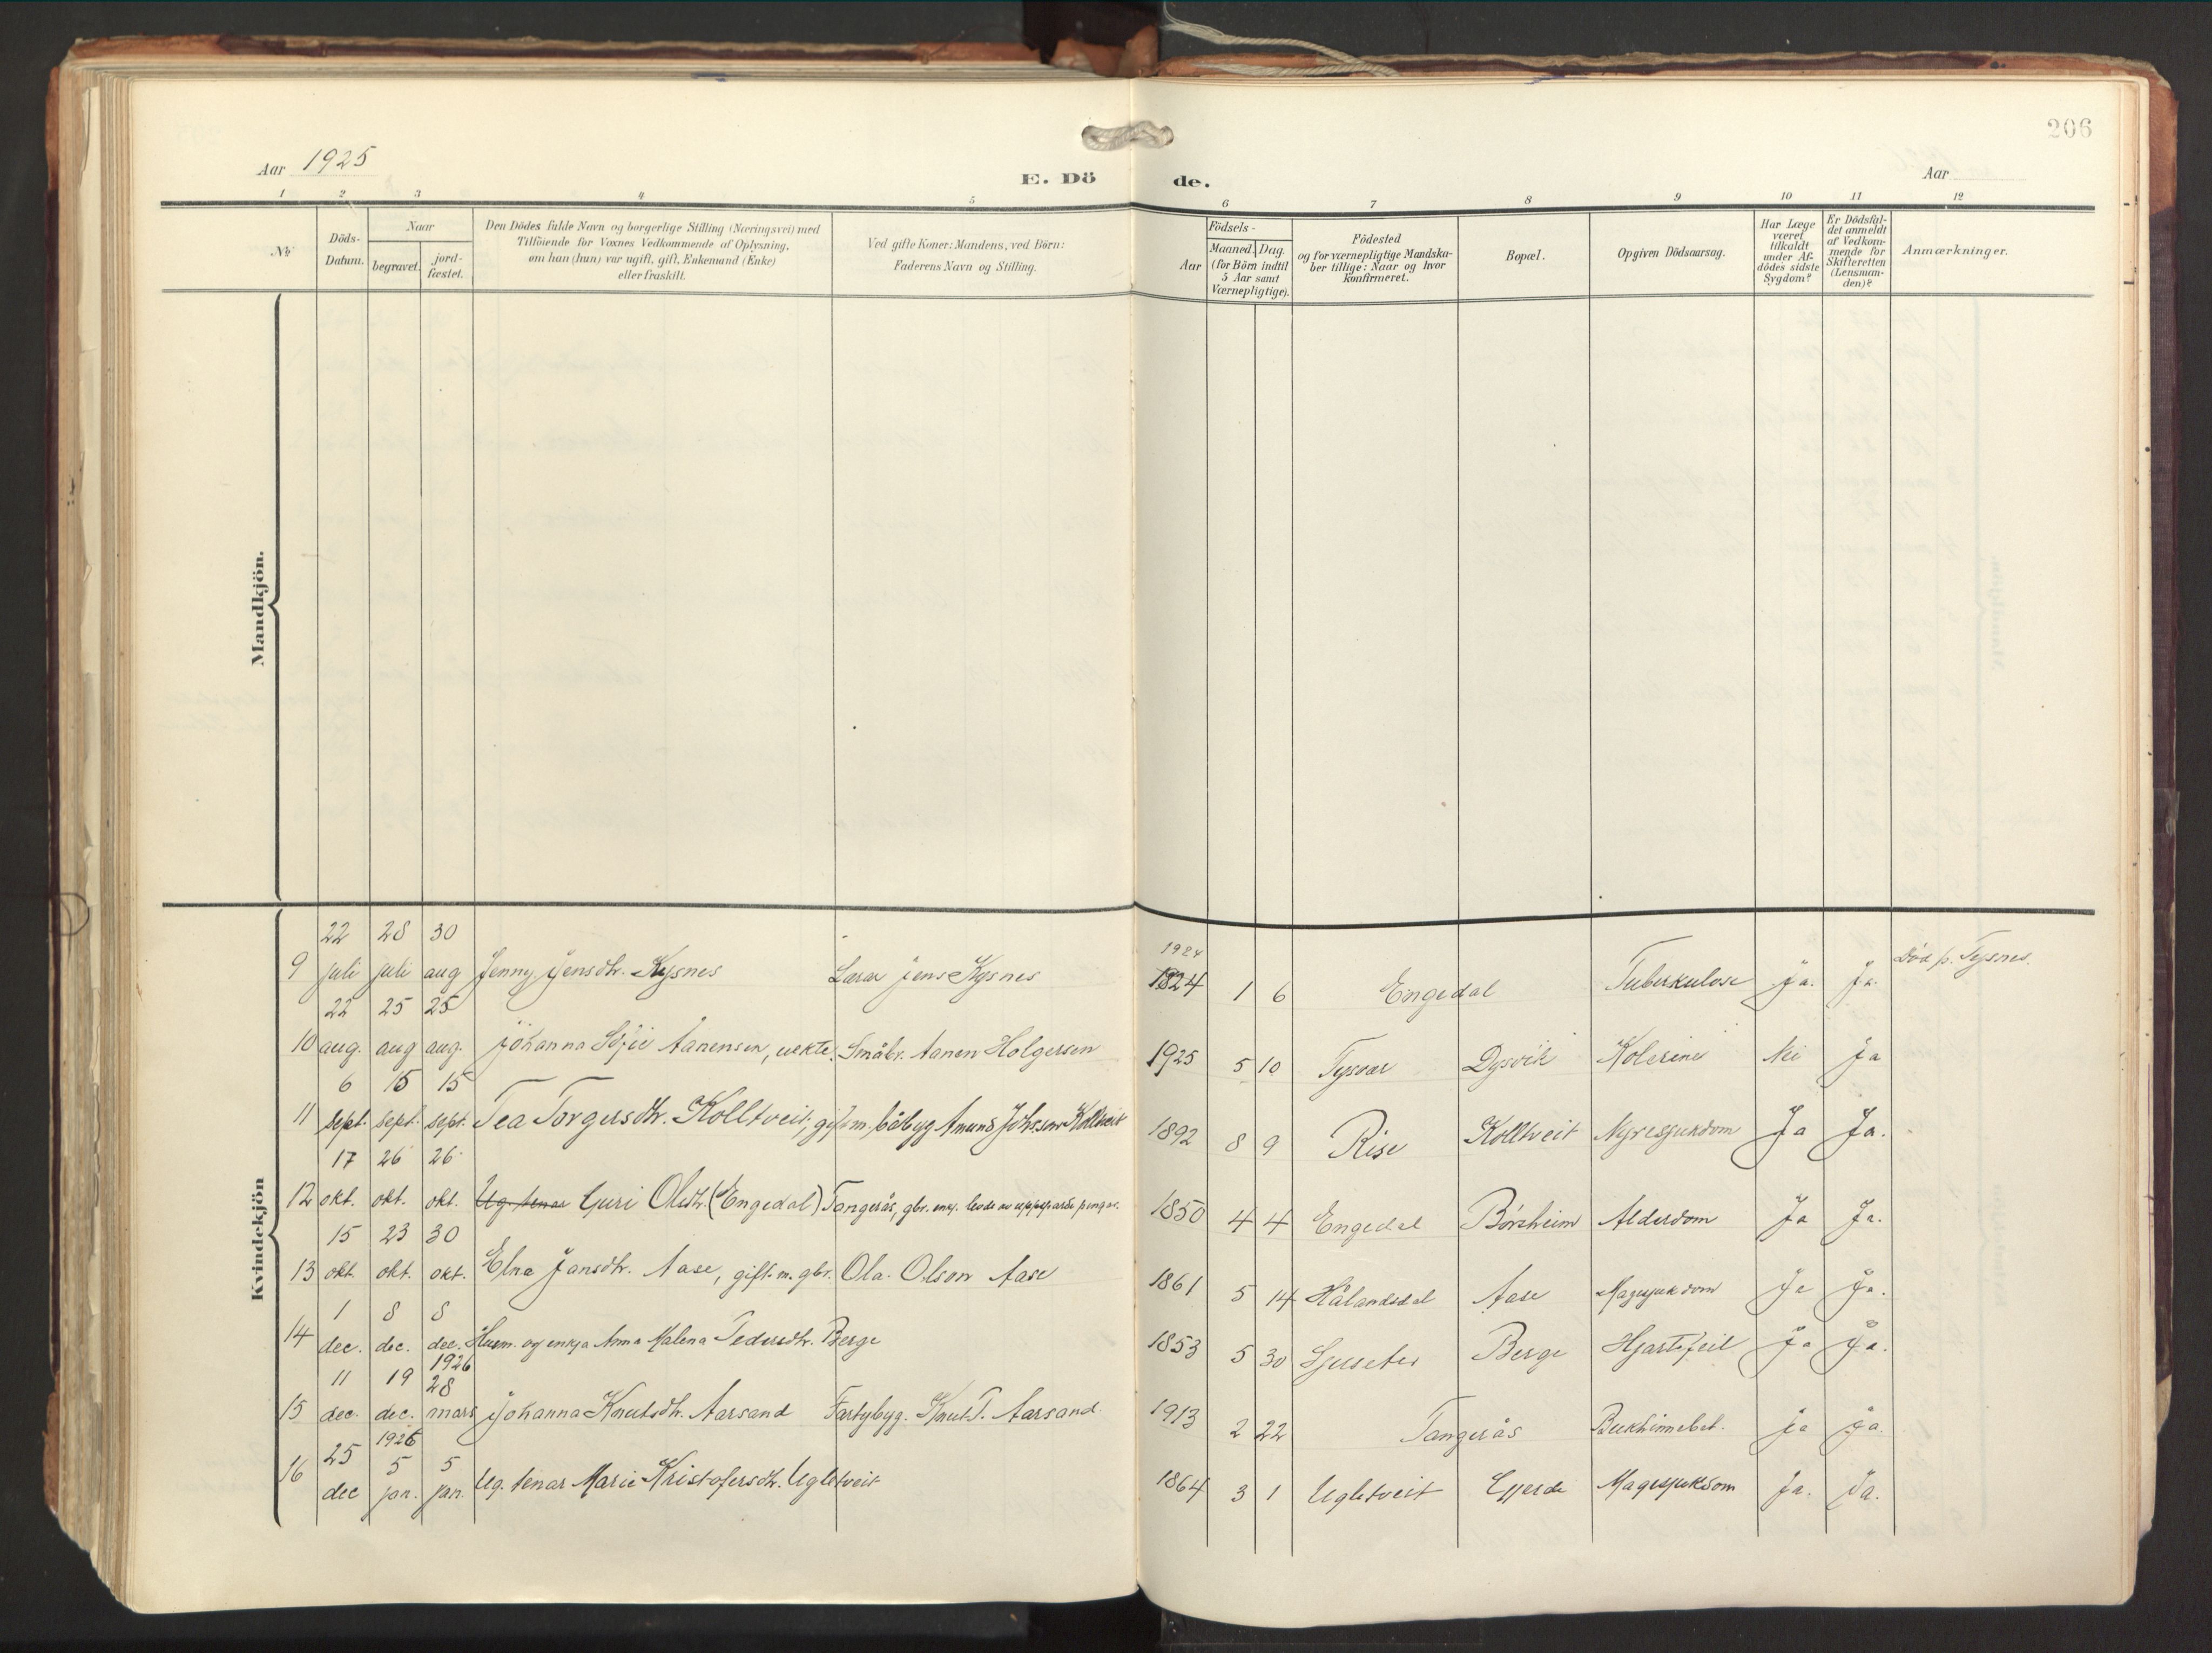 206
Aar 1925
E. Dö de.
Aar
1 2 3 4 5 6 7 8 9 10 11 12
No
Döds-
Datum.
Naar
begravet.
jord-
fæstet.
Den Dödes fulde Navn og borgerlige Stilling (Næringsvei) med
Tilföiende for Voxnes Vedkommende af Oplysning,
om han (hun) var ugift, gift, Enkemand (Enke)
eller fraskilt.
Ved gifte Koner: Mandens, ved Börn:
Faderens Navn og Stilling.
Födsels-
Aar
Maaned. Dag.
(for Börn indtil
5 Aar samt
Værnepligtige).
Födested
og for værnepligtige Mandska-
ber tillige: Naar og hvor
konfirmeret.
Bopæl.
Opgiven Dödsaarsag.
Har Læge
været
tilkaldt
under Af-
dödes sidste
Sygdom?
Er Dödsfal-
det anmeldt
af Vedkom-
mende for
Skifteretten
(Lensman-
den)?
Anmærkninger.
Mandkjön.
Kvindekjön
22 28 30
1924
9 juli juli aug Jenny Jensdtr. Kysnes Lærar Jens Kysnes 1824 1 6 Engedal Tuberkulose Ja. Ja. Död p. Tysnes.
22 25 25
10 aug. aug aug. Johanna Aanensen, uekte. Småbr. Aanen Holgersen 1925 5 10 Tysvær Dysvik Kolerine Nei Ja
6 15 15
11 sept. sept. sept. Tea Torgersdtr. Kolltveit, gift m. båtbyg Amund Kolltveit 1892 8 9 Rise Kolltveit Nyresjukdom Ja Ja.
17 26 26
12 okt. okt. okt. Ug. tenar Guri Olsdtr. (Engedal) Tangerås, gbr. enkj. levde av uppsparde pengar. 1850 4 4 Engedal Börsheim Alderdom Ja Ja.
15 23 30
13 okt. okt. okt. Elna Jansdtr. Aase, gift. m. gbr. Ola Olson Aase 1861 5 14 Hålandsdal Aase Magesjukdom Ja Ja.
1 8 8
14 dec. dec. dec. Husm. og enkja Anna Malena Pedersdtr. Berge 1853 5 30 Berge Hjartefeil Ja Ja.
1926
11 19 28
15 dec. dec. mars Johanna Knutsdtr. Aarsand Fartybyg. Knut T. Aarsand. 1913 2 22 Tangerås Bukhinnebet. Ja Ja.
1926
25 5 5
16 dec jan. jan. Ug. tenar Marie Kristofersdtr. Ugletveit 1864 3 1 Ugletveit Gjerde Magesjukdom Ja. Ja.